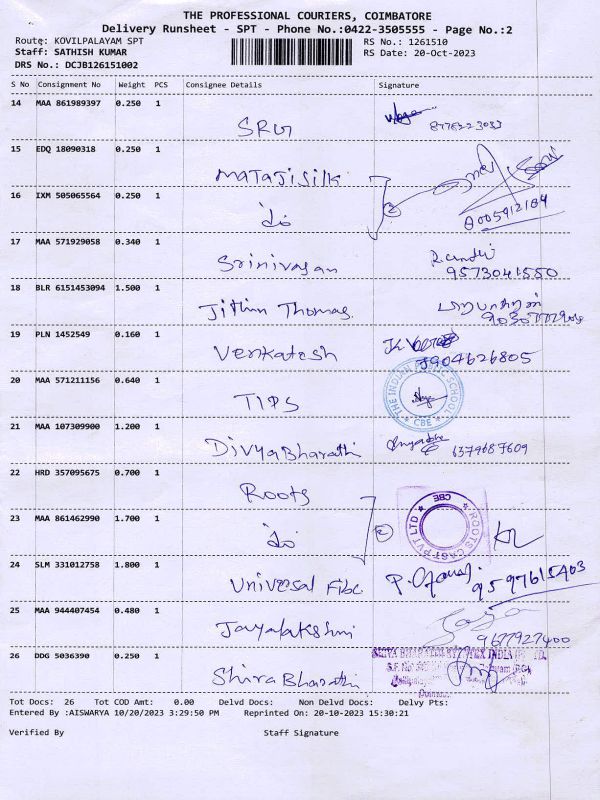 THE PROFESSIONAL COURIERS, COIMBATORE
Delivery Runsheet - SPT - Phone No.:0422-3505555 - Page No.:2
Route: KOVILPALAYAM SPT RS No.: 1261510
Staff: SATHISH KUMAR RS Date: 20-Oct-2023
DRS No.: DCJB126151002
S No Consignment No Weight PCS Consignee Details Signature
14 MAA 861989397 0.250 1
SRG
15 EDQ 18090318 0.250 1
MATAJISilk
16 IXM 505065564 0.250 1
do 2 8005912184
17 MAA 571929058 0.340 1
Srinivasan 9573041550
18 BLR 6151453094 1.500 1
Jithin Thomas.
19 PLN 1452549 0.160 1
Venkatesh 7904626805
20 MAA 571211156 0.640 1
TIPS THE INDIAN PUBLIC SCHOOL * CBE *
21 MAA 107309900 1.200 1
DivyaBharathi 6379687609
22 HRD 357095675 0.700 1
Roots
23 MAA 861462990 1.700 1
do 2 ROOTS CAST PVT LTD * CBE *
24 SLM 331012758 1.800 1
Universal Fibc 9597615403
25 MAA 944407454 0.480 1
Jayalakshmi 9677927400
26 DDG 5036390 0.250 1
Shiva Bharathi
Tot Docs: 26 Tot COD Amt: 0.00 Delvd Docs: Non Delvd Docs: Delvy Pts:
Entered By :AISWARYA 10/20/2023 3:29:50 PM Reprinted On: 20-10-2023 15:30:21
Verified By Staff Signature